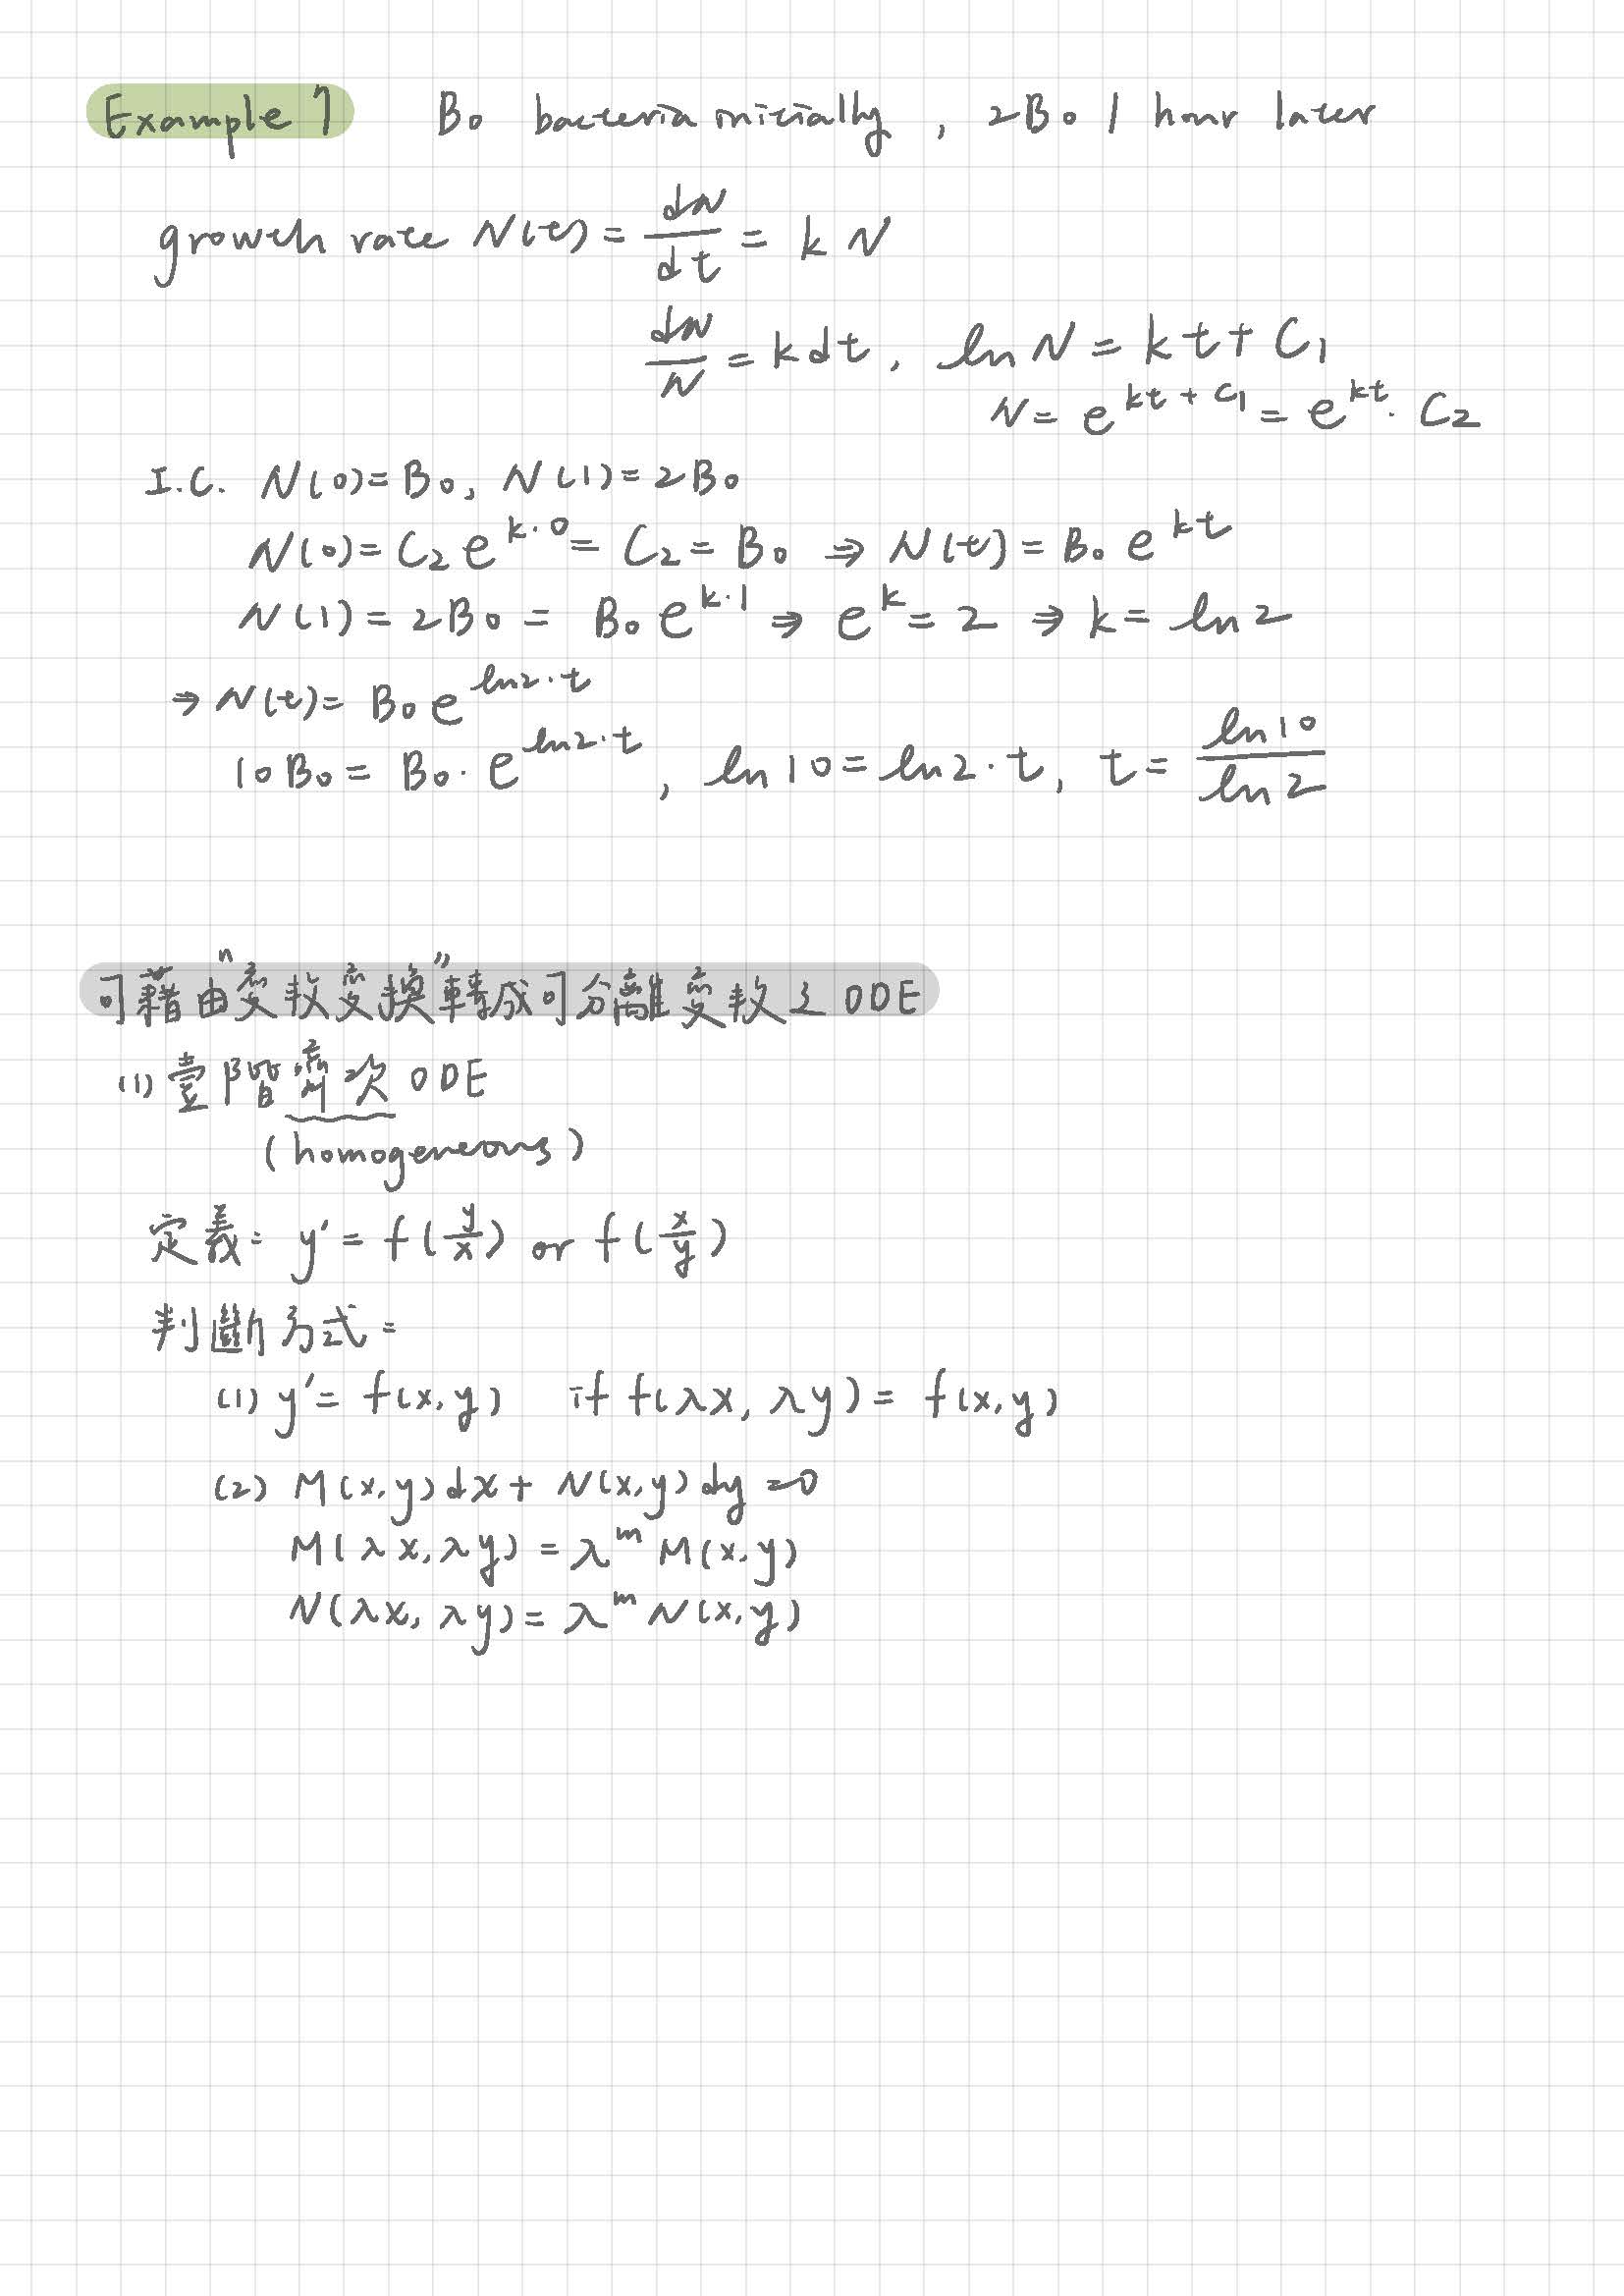 Example 7 B₀ bacteria initially , 2B₀ 1 hour later
growth rate N(t) = dN/dt = k N
dN/N = k dt , ln N = k t + C₁
N = e^(kt + C₁) = e^(kt) · C₂
I.C. N(0) = B₀, N(1) = 2B₀
N(0) = C₂ e^(k·0) = C₂ = B₀ ⇒ N(t) = B₀ e^(kt)
N(1) = 2B₀ = B₀ e^(k·1) ⇒ e^k = 2 ⇒ k = ln 2
⇒ N(t) = B₀ e^(ln2·t)
10 B₀ = B₀ · e^(ln2·t) , ln 10 = ln 2 · t , t = ln 10 / ln 2
可藉由"變數變換"轉成可分離變數之 ODE
(1) 壹階齊次 ODE
(homogeneous)
定義: y' = f(y/x) or f(x/y)
判斷方式:
(1) y' = f(x,y) if f(λx, λy) = f(x,y)
(2) M(x,y)dx + N(x,y)dy = 0
M(λx, λy) = λ^m M(x,y)
N(λx, λy) = λ^m N(x,y)